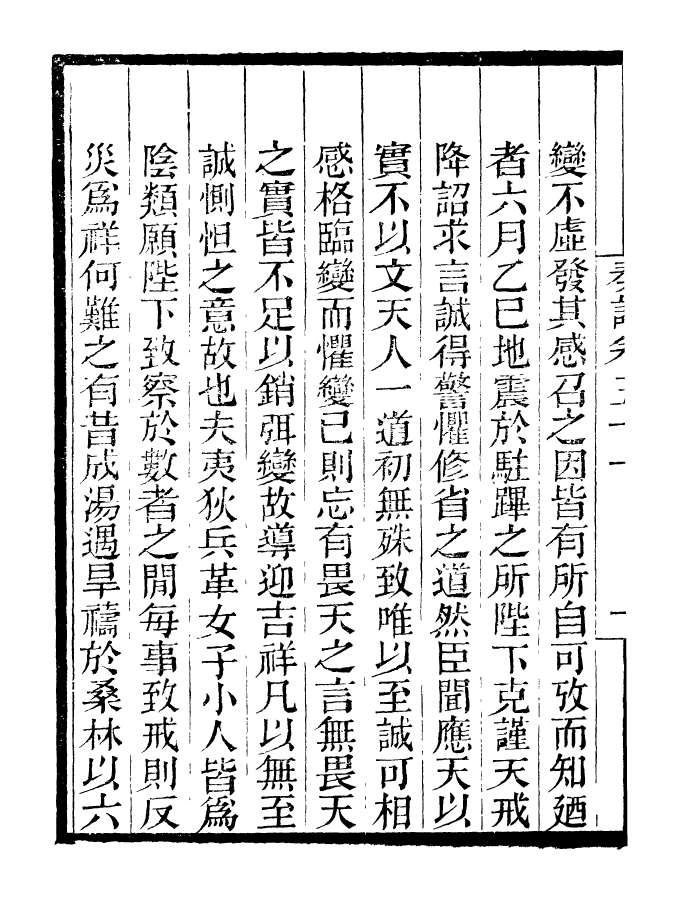 變不虛發其感召之因皆有所自可攷而知廼
者六月乙巳地震於駐蹕之所陛下克謹天戒
降詔求言誠得警懼修省之道然臣聞應天以
實不以文天人一道初無殊致唯以至誠可相
感格臨變而懼變已則忘有畏天之言無畏天
之實皆不足以銷弭變故導迎吉祥凡以無至
誠惻怛之意故也夫夷狄兵革女子小人皆爲
陰類願陛下致察於數者之閒每事致戒則反
災爲祥何難之有昔成湯遇旱禱於桑林以六